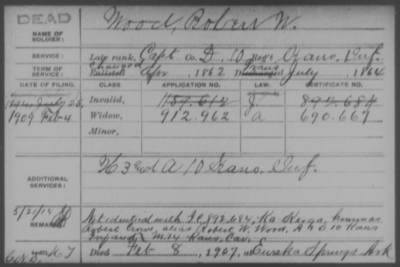 DEAD
Wood, Robert W.
NAME OF SOLDIER:
SERVICE: Late rank, Capt Co. D, 10 Reg't Kans. Inf.
TERM OF SERVICE: Enlisted Apr, 1862 Discharged July, 1864
DATE OF FILING. CLASS. APPLICATION NO. LAW. CERTIFICATE NO.
Invalid,
1909 Feb 4 Widow, 912.962 A 690.667
Minor,
ADDITIONAL SERVICES: H 3 and A 10 Kans. Inf.
5/21/14
REMARKS: Not identical with I.C. 892.684,
Robert Crow, alias Robert W. Wood, A & D 10 Kans
Inf and M. 14 Kans. Cav.
Died Feb 8, 1907, at Eureka Springs Ark